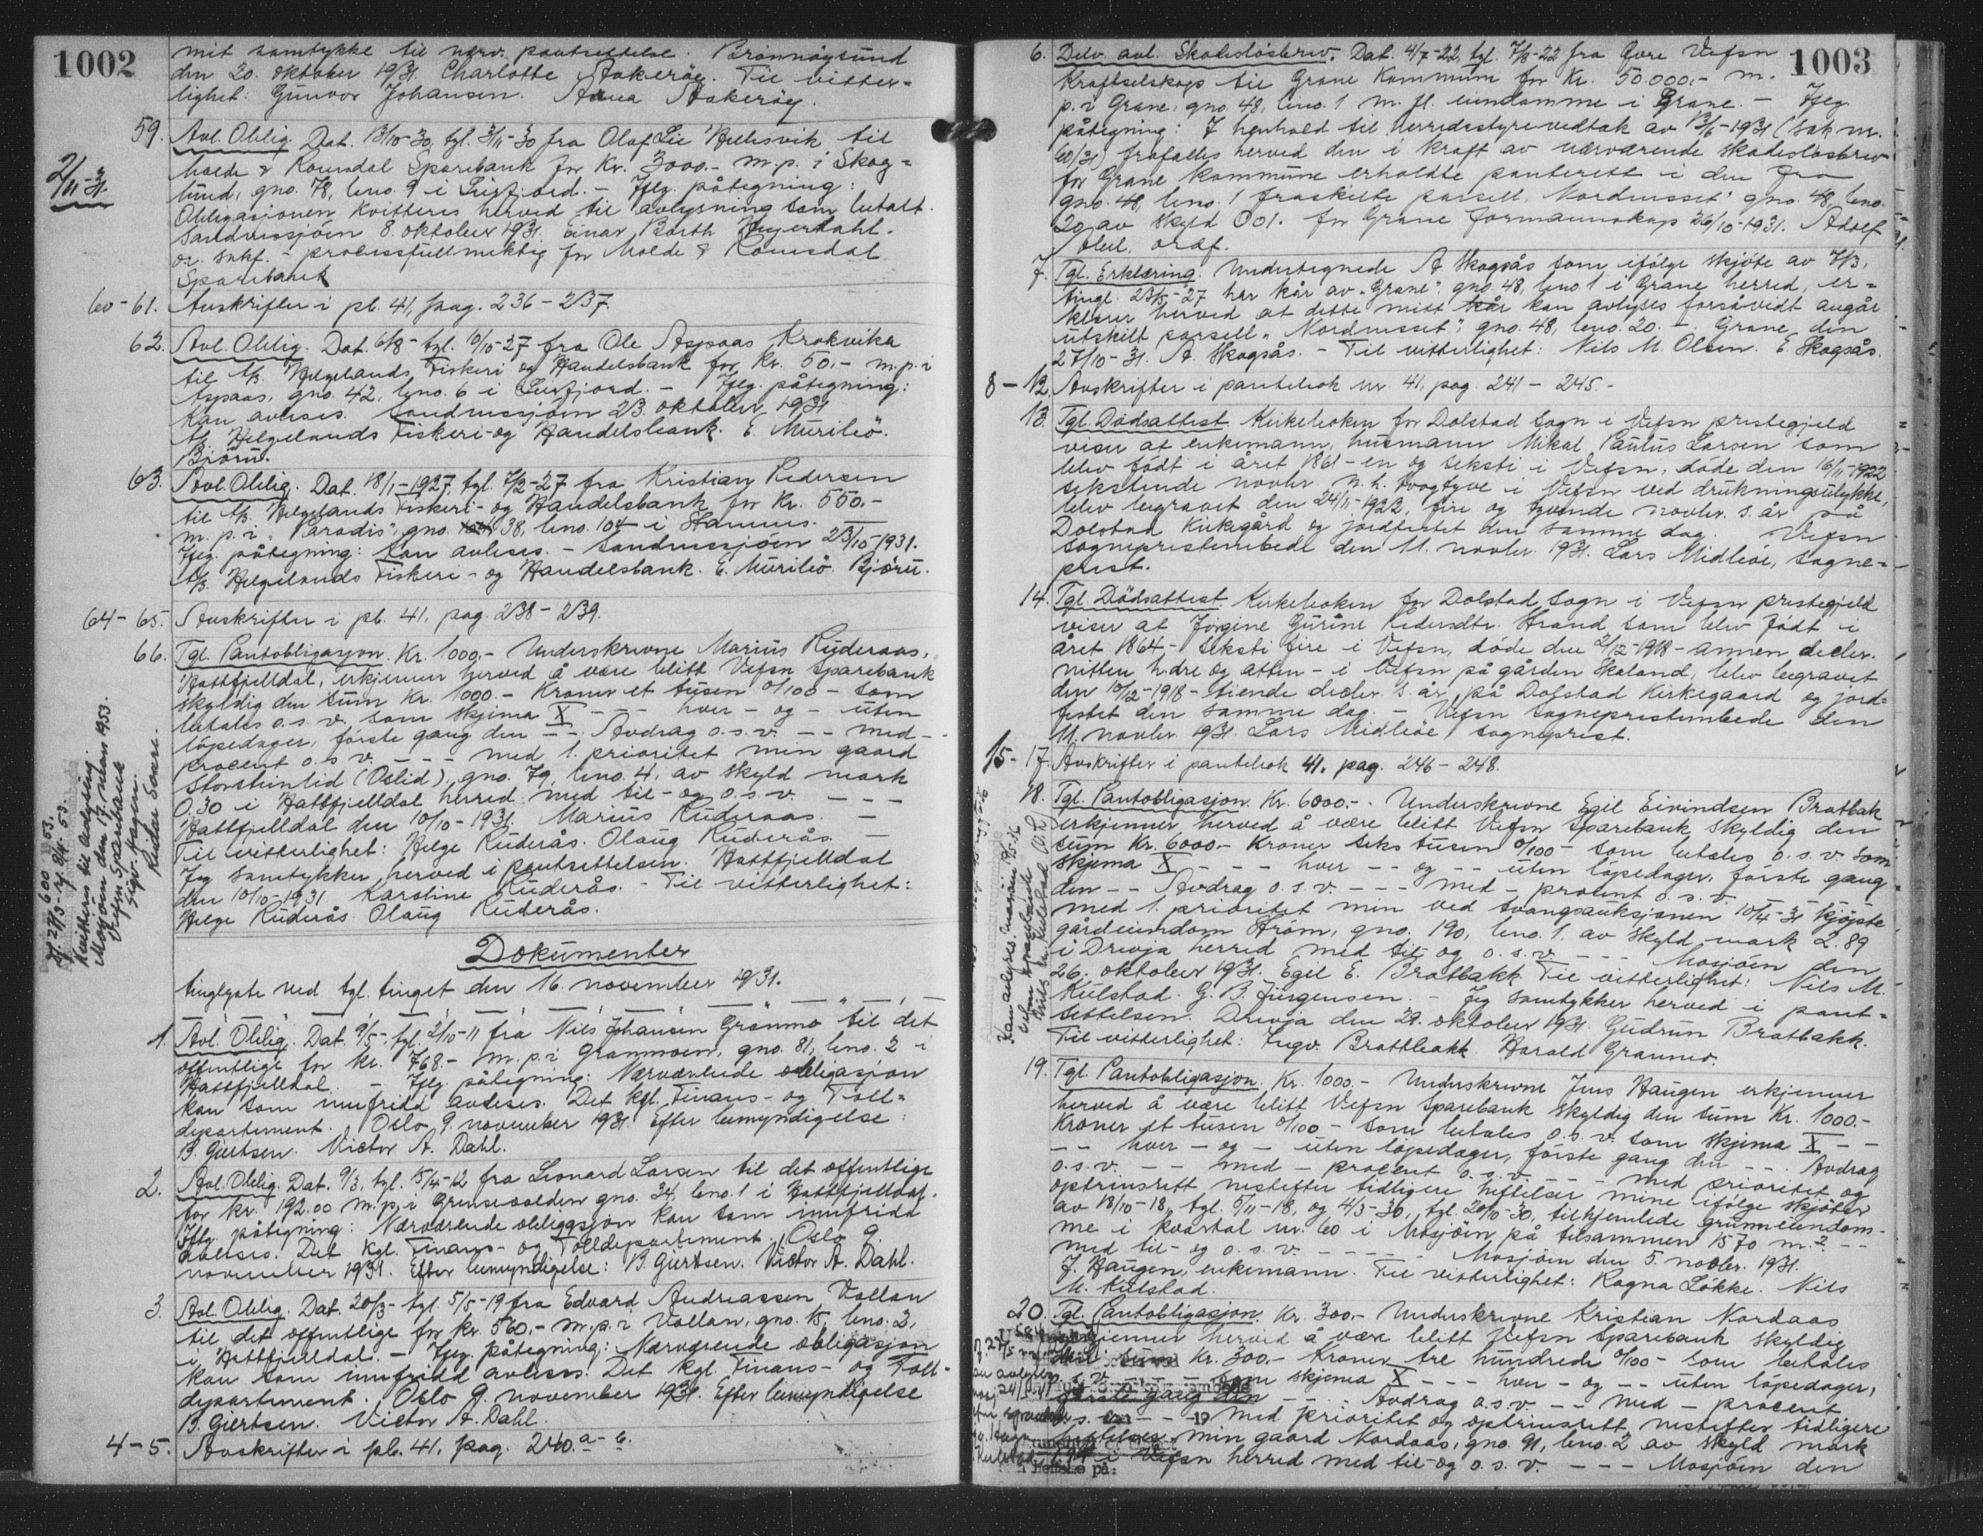 1002
mit samtykke til nærv. pantsettelse. Brønnøysund
den 20. oktober 1931. Charlotte Aakerøy. Til vitter-
lighet: Gunvor Johansen. Anna Aakerøy.
59. Avl. Oblig. Dat. 13/10-30, tgl. 3/11-30 fra Olaf Lie Hellesvik til
2/11-31. Molde & Romsdal Sparebank for Kr. 3000.- m. p. i Skog-
lund, gno. 78, bno. 9 i Leirfjord. - Iflg. påtegning:
Obligasjonen kvitteres herved til avlysning som betalt.
Sandnessjøen 8. oktober 1931. Einar Barth Heyerdahl.
or. sakf. - processfullmektig for Molde & Romsdal
Sparebank
60-61. Avskrifter i pb. 41, pag. 236-237.
62. Avl. Oblig. Dat. 6/8- tgl. 10/10-27 fra Ole Aspaas Krokvika
til A/S. Helgelands Fiskeri og Handelsbank for Kr. 50.- m. p. i
Aspaas, gno. 42, bno. 6 i Leirfjord. - Iflg. påtegning:
Kan avleses. Sandnessjøen 23. oktober 1931
A/S. Helgelands Fiskeri- og Handelsbank. E. Meribø.
Björu.
63. Avl. Oblig. Dat. 18/1-1927, tgl. 7/2-27 fra Kristian Pedersen
til A/S. Helgelands Fiskeri- og Handelsbank for Kr. 550.-
m. p. i "Paradis", gno. 38, bno. 104 i Stamnes.
Iflg. påtegning: Kan avleses. - Sandnessjøen 23/10-1931.
A/S. Helgelands Fiskeri- og Handelsbank. E. Meribø. Bjøru.
64-65. Avskrifter i pb. 41, pag. 238-239.
66. Tgl. Pantobligasjon. Kr. 1000.- Underskrevne Marius Ruderaas,
Hattfjelldal, erkjenner herved å være blitt Vefsn Sparebank
skyldig den sum Kr. 1000.- Kroner et tusen 0/100 - som
betales o.s.v. som skjema X - - - hver - og - uten
löpedager, første gang den - - . Avdrag o.s.v. - - med - -
procent o.s.v. - - - med 1. prioritet min gaard
Storsteinlid (Oslid), gno. 79, bno. 4, av skyld mark
0.30 i Hattfjelldal herred med til- og o.s.v. - - -
Hattfjelldal den 10/10-1931. Marius Ruderaas. -
Til vitterlighet: Helge Ruderås. Olaug Ruderås. -
Jeg samtykker herved i pantsettelsen. Hattfjelldal
den 10/10-1931. Karoline Ruderås. - Til vitterlighet:
Helge Ruderås. Olaug Ruderås.
Kvitteres til avlysning
Mosjøen den 17. mars 1953.
Vefsn Sparebank
Dokumenter
tinglyste ved tgl. tinget den 16. november 1931.
1. Avl. Oblig. Dat. 9/5- tgl. 2/10-11 fra Nils Johansen Grönmo til det
offentlige for kr. 768- m. p. i Granmoen, gno. 81, bno. 2 i
Hattfjelldal. - Iflg. påtegning: Nærværende obligasjon
kan som innfridd avleses. Det kgl. Finans- og Toll-
departement. Oslo 9. november 1931. Efter bemyndigelse:
B. Giertsen. Victor A. Dahl.
2. Avl. Oblig. Dat. 9/3, tgl. 15/4-12 fra Leonard Larsen til det offentlige
for kr. 192.00 m. p. i Grenseoolden gno. 34, bno. 1 i Hattfjelldal.
Iflg. påtegning: Nærværende obligasjon kan som innfridd
avleses. Det kgl. Finans- og Tolldepartement. Oslo 9.
november 1931. Efter bemyndigelse: B. Giertsen. Victor A. Dahl.
3. Avl. Oblig. Dat. 20/3- tgl. 5/5-19 fra Edvard Andreassen Vollan
til det offentlige for kr. 560,- m. p. i Vollan, gno. 15, bno. 2,
i Hattfjelldal. - Iflg. påtegning: Nærværende obligasjon
kan som innfridd avleses. Det kgl. Finans- og Toll-
departement. Oslo 9. november 1931. Efter bemyndigelse
B. Giertsen. Victor A. Dahl.
4-5. Avskrifter i pb. 41. pag. 240. a-b.
1003
6. Delv. avl. Skadesløsbrev. Dat. 4/7-22, tgl. 7/8-22 fra Övre Vefsn
Kraftselskap til Grane Kommune for Kr. 50000.- m.
p. i Grane, gno. 48, bno. 1 m. fl. eiendomme i Grane. - Iflg.
påtegning: I henhold til herredsstyrevedtak av 13/6-1931 (sak nr.
60/31) frafalles herved den i kraft av nærværende skadesløsbrev
for Grane kommune erholdte panterett i den fra
gno. 48, bno. 1 fraskilte parsell "Nordnesset" gno. 48, bno.
20 av skyld 0.01. For Grane formannskap 26/10-1931. Adolf
ordf.
7. Tgl. Erklæring. Undertegnede A. Skogsås som ifölge skjöte av 7/3,
tingl. 23/5-27 har kår av "Grane", gno. 48, bno. 1 i Grane herred, er-
klærer herved at dette mitt kår kan avlyses forsåvidt angår
utskilt parsell "Nordnesset", gno. 48, bno. 20. - . Grane, den
27/10-31. A. Skogsås. - Til vitterlighet: Nils M. Olsen. E. Skogsås.
8-12. Avskrifter i pantebok nr. 41, pag. 241-245.-
13. Tgl. Dødsattest. Kirkeboken for Dolstad sogn i Vefsn prestegjeld
viser at enkemann, husmann Mikal Paulus Larsen som
blev födt i året 1861 - en og seksti i Vefsn, döde den 16/11-1922
sekstende novbr. n. h. toogtyve i Vefsn ved drukningsulykke,
blev begravet den 24/11-1922, fire og tyvende novbr. s. år på
Dolstad Kirkegård og jordfestet den samme dag. Vefsn
sogneprestembede den 11. novbr. 1931. Lars Midböe, sogne-
prest.
14. Tgl. Dödsattest. Kirkeboken for Dolstad sogn i Vefsn prestegjeld
viser at Jörgine Gurine Pedersdtr. Strand som blev födt i
året 1864 - seksti fire i Vefsn, döde den 2/12-1918 - annen decbr.
nitten h.dre og atten - i Vefsn på gården Skoland, blev begravet
den 10/12-1918 - tiende decbr. s. år, på Dolstad Kirkegaard og jord-
festet den samme dag. - Vefsn sogneprestembede den
11. novbr. 1931. Lars Midböe, sogneprest.
15-17. Avskrifter i pantebok 41. pag. 246-248.
18. Tgl. Pantobligasjon. Kr. 6000.- . Underskrevne Egil Eivindsen Bratbak
erkjenner herved å være blitt Vefsn Sparebank skyldig den
sum Kr. 6000.- Kroner seks tusen 0/100 - som betales o.s.v. som
skjema X - - - hver - - og - - uten löpedager, første gang
den - - . Avdrag o.s.v. - - - med - procent o.s.v. - -
med 1. prioritet min ved tvangsauksjonen 10/4-31 kjøpte
gårdeiendom Strøm, gno. 190, bno. 1. av skyld mark 2.89
i Drevja herred med til og o.s.v. - - - Mosjöen den
26. oktober 1931. Egil E. Bratbakk. Til vitterlighet: Nils M.
Kulstad. G. B. Jürgensen. - Jeg samtykker herved i pant-
settelsen. Drevja den 29. oktober 1931. Gudrun Bratbakk.
Til vitterlighet: Ingv. Brattbakk. Harald Granmo.
19. Tgl. Pantobligasjon. Kr. 1000.- Underskrevne Jens Haugen erkjenner
herved å være blitt Vefsn Sparebank skyldig den sum Kr. 1000.-
Kroner et tusen 0/100 - som betales o.s.v. som skjema X - -
- - hver - og - uten löpedager, första gang den - - . Avdrag
o.s.v. - - med - procent o.s.v. - - - med prioritet og
optrinsrett nestefter tidligere heftelser mine ifølge skjøter
av 18/10-18, tgl. 5/11-18, og 4/3-30, tgl. 20/10-30, tilhjemlede grunneiendom-
me i kvartal nr. 60 i Mosjöen på tilsammen 1570 m.2 - -
med til- og o.s.v. - - - - Mosjöen den 5. novbr. 1931.
J. Haugen, enkemann. Til vitterlighet: Ragna Løkke. Nils
M. Kulstad.
20. Tgl. Pantobligasjon. Kr. 300.- Underskrevne Kristian Nordaas
erkjenner herved å være blitt Vefsn Sparebank skyldig
den sum Kr. 300.- Kroner tre hundrede 0/100 - som betales
o.s.v. som skjema X - - - hver - og - - uten löpedager,
første gang den - - . Avdrag o.s.v. - - med - procent
o.s.v. - - - med prioritet og optrinsrett nestefter tidligere
heftelser min gaard Nordaas, gno. 91, bno. 2 av skyld mark
i Vefsn herred med til- og o.s.v. - - - Mosjøen den